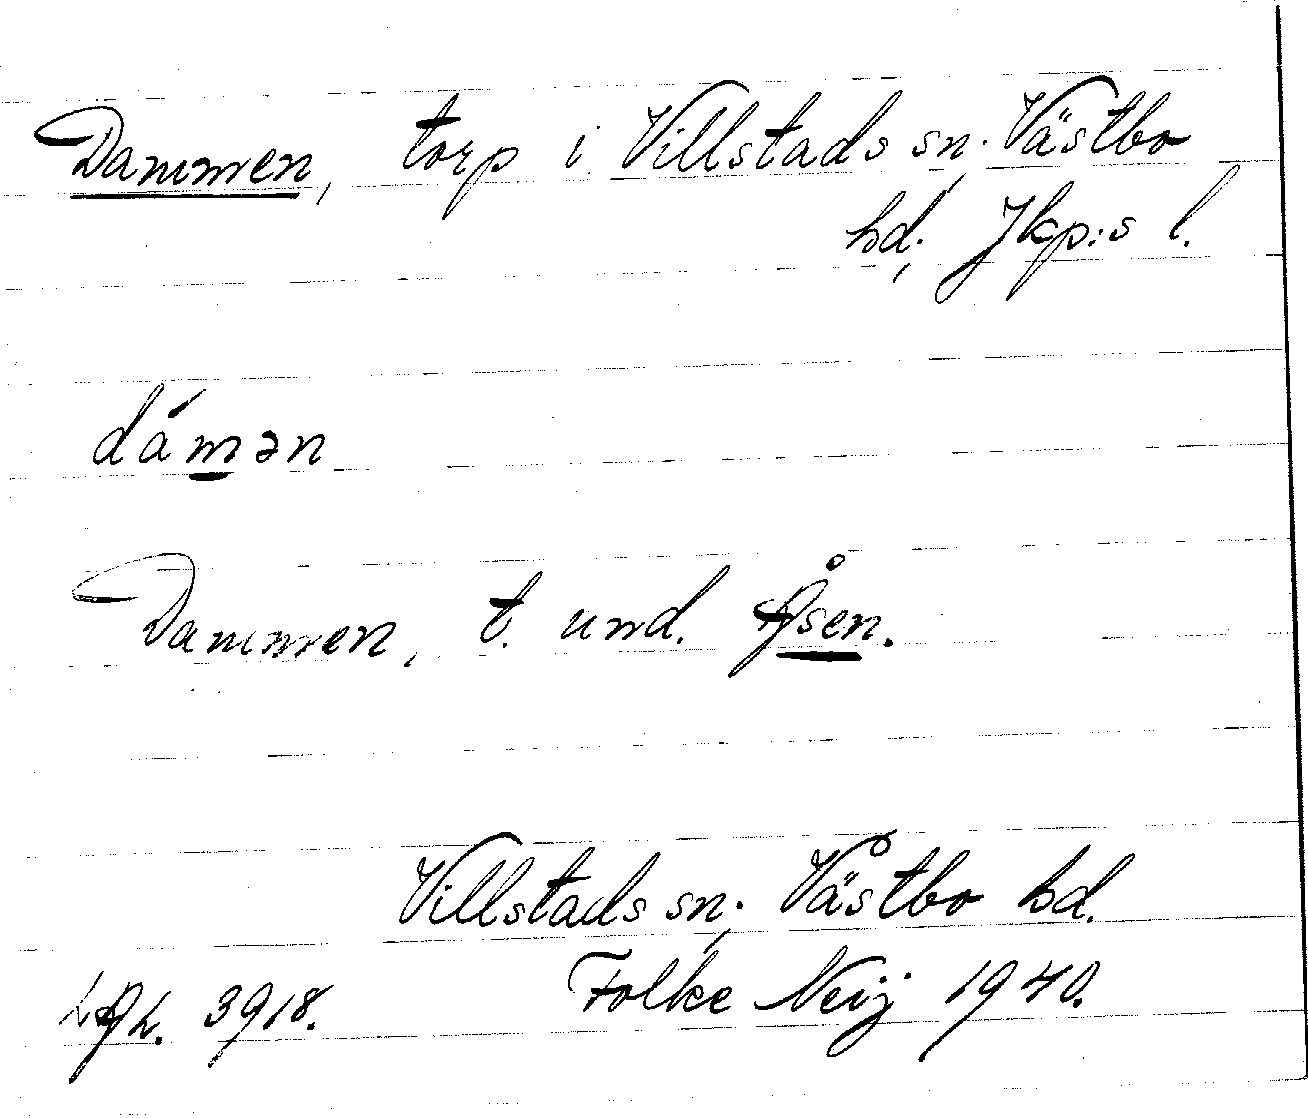 Dammen, torp i Villstads sn, Västbo
hd, Jkp:s l.
dámən
Dammen, t. und. Åsen.
Villstads sn, Västbo hd.
Folke Neij 1940.
LAL. 3918.